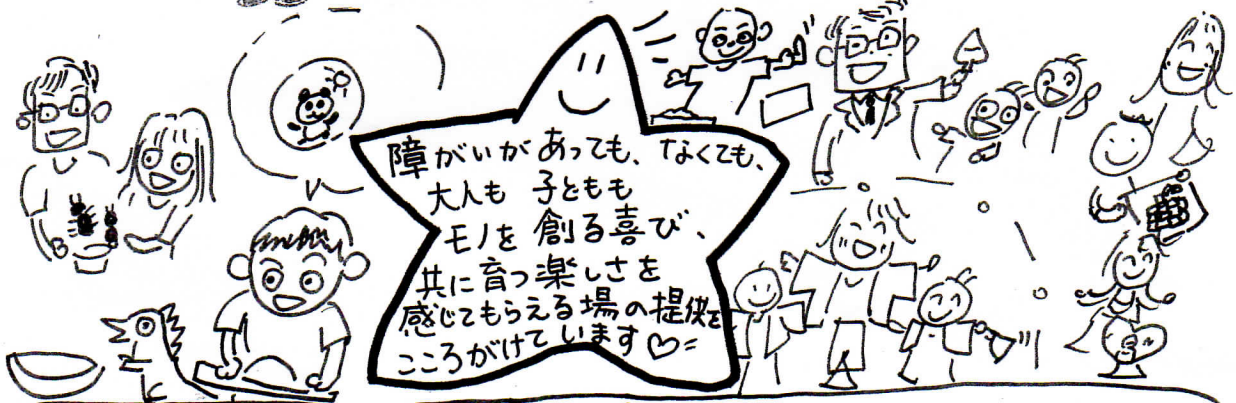 障がいがあっても、なくても、
大人も 子どもも
モノを 創る喜び、
共に育つ楽しさを
感じてもらえる場の提供を
こころがけています♡